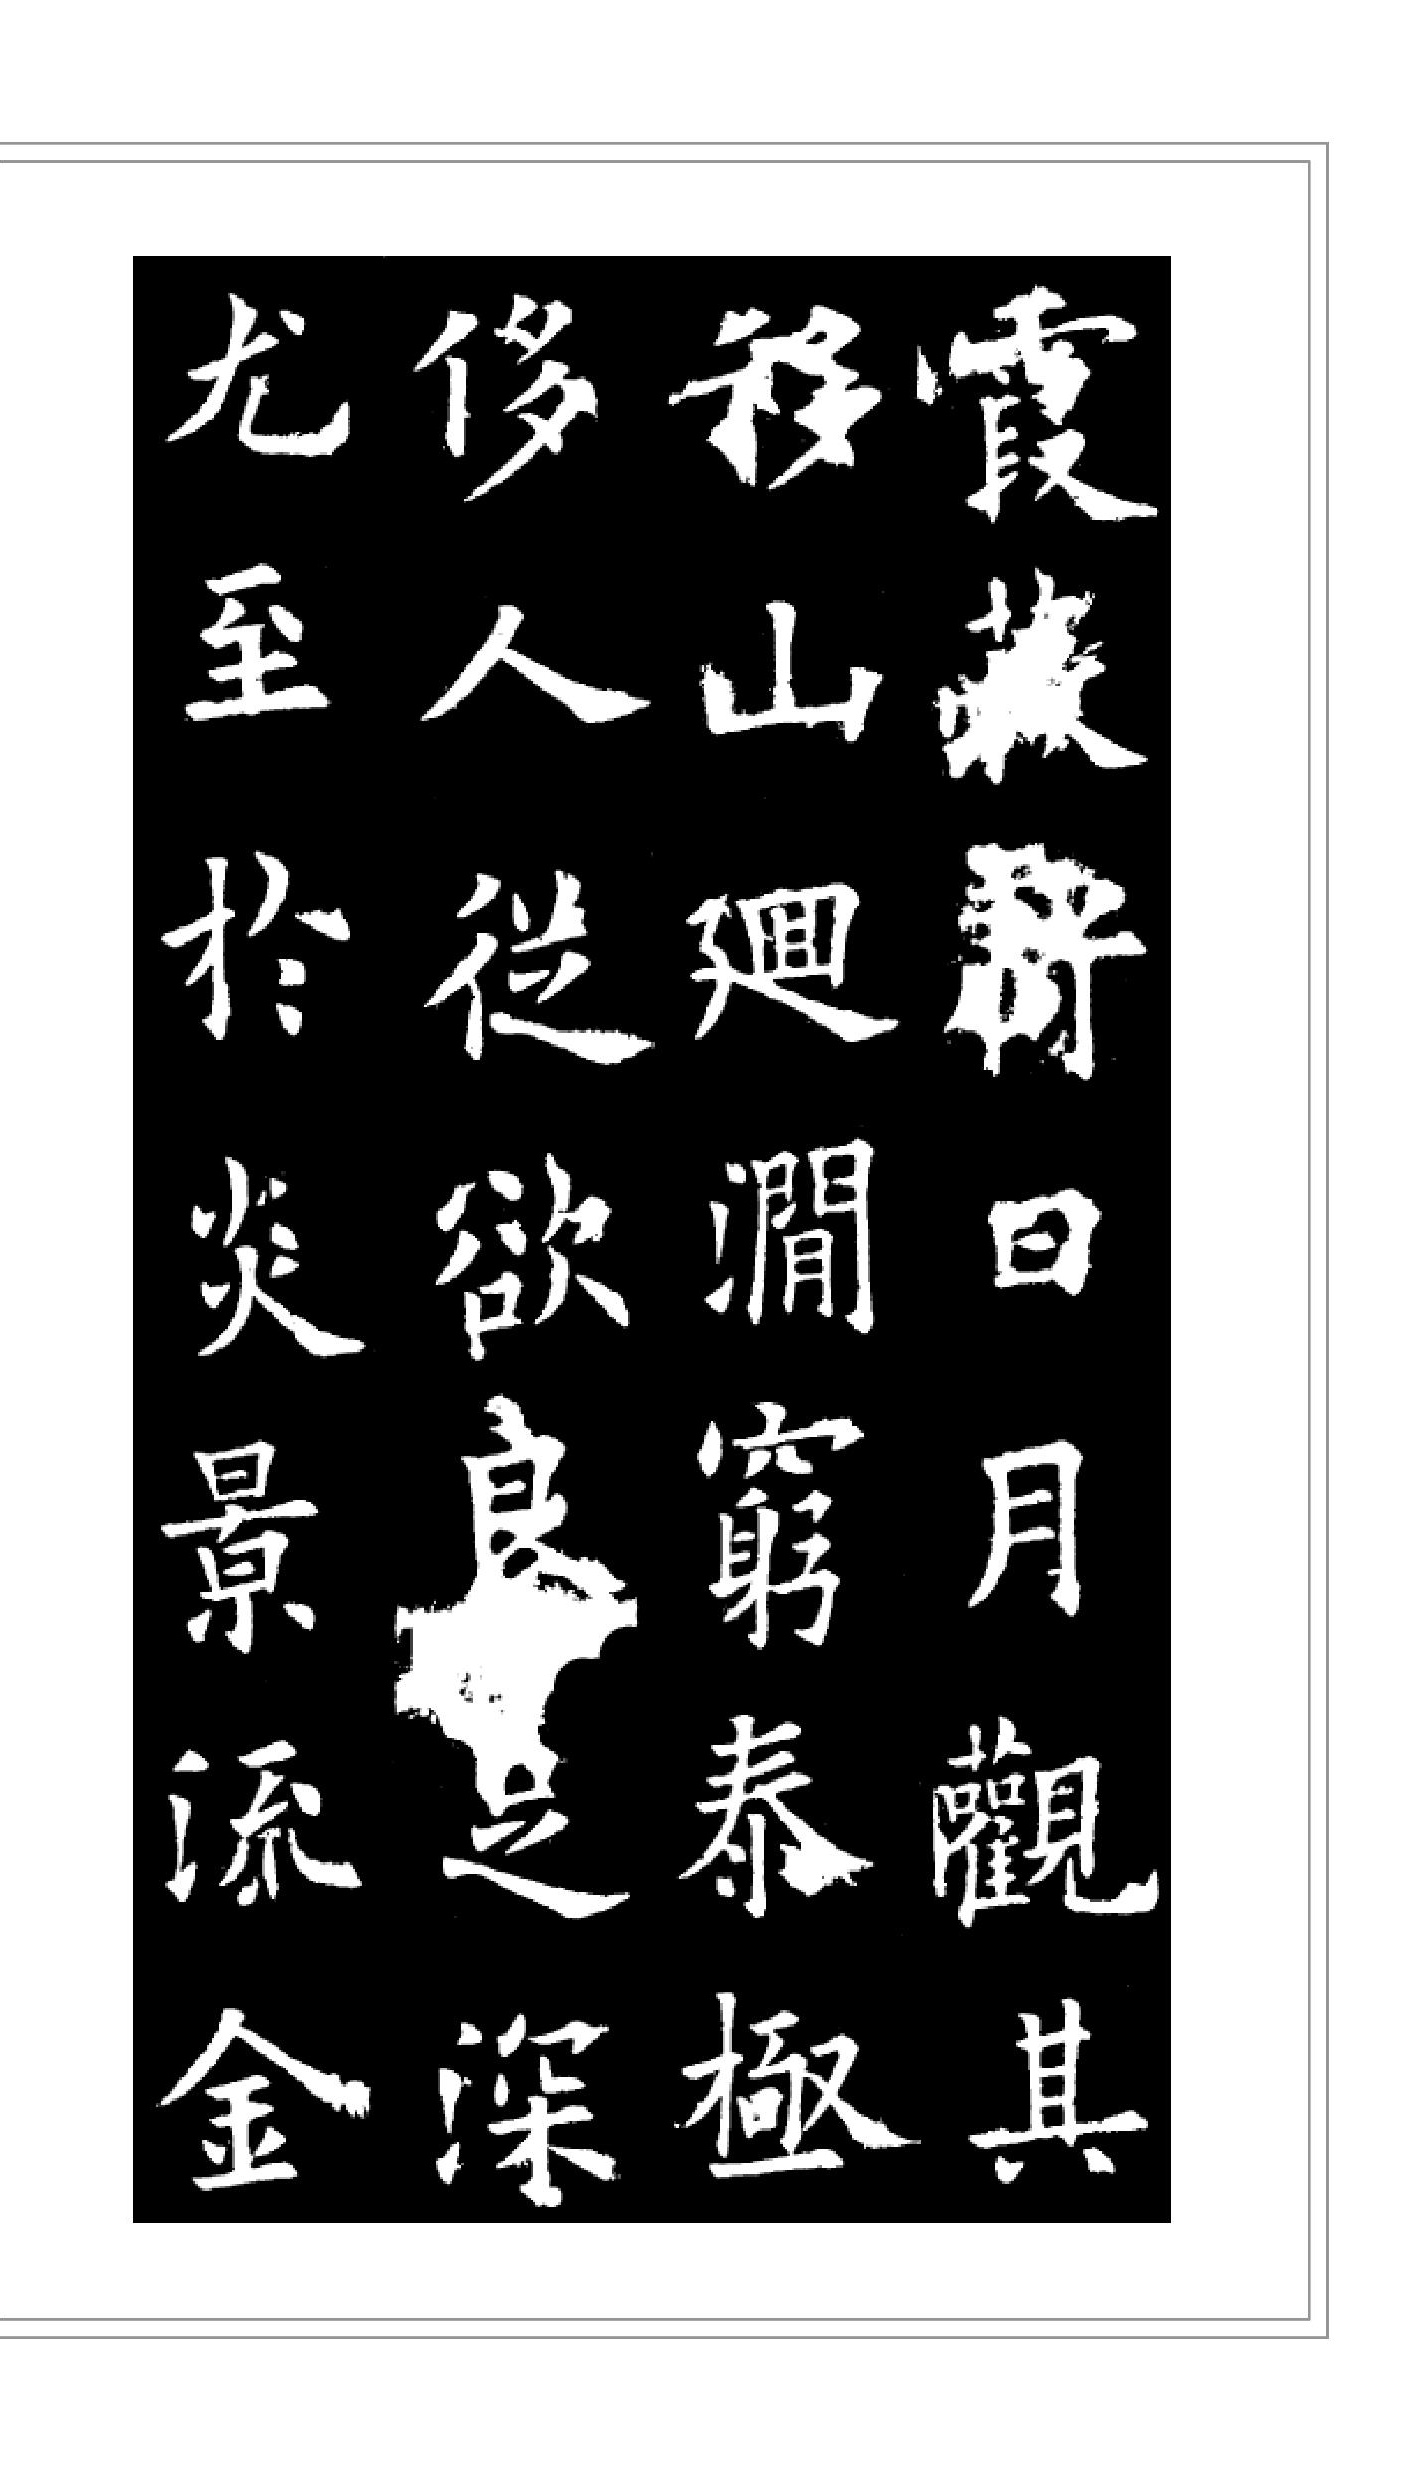 霞蔚蔽日月觀其
移山廻澗窮泰極
侈人從欲良足深
尤至於炎景流金